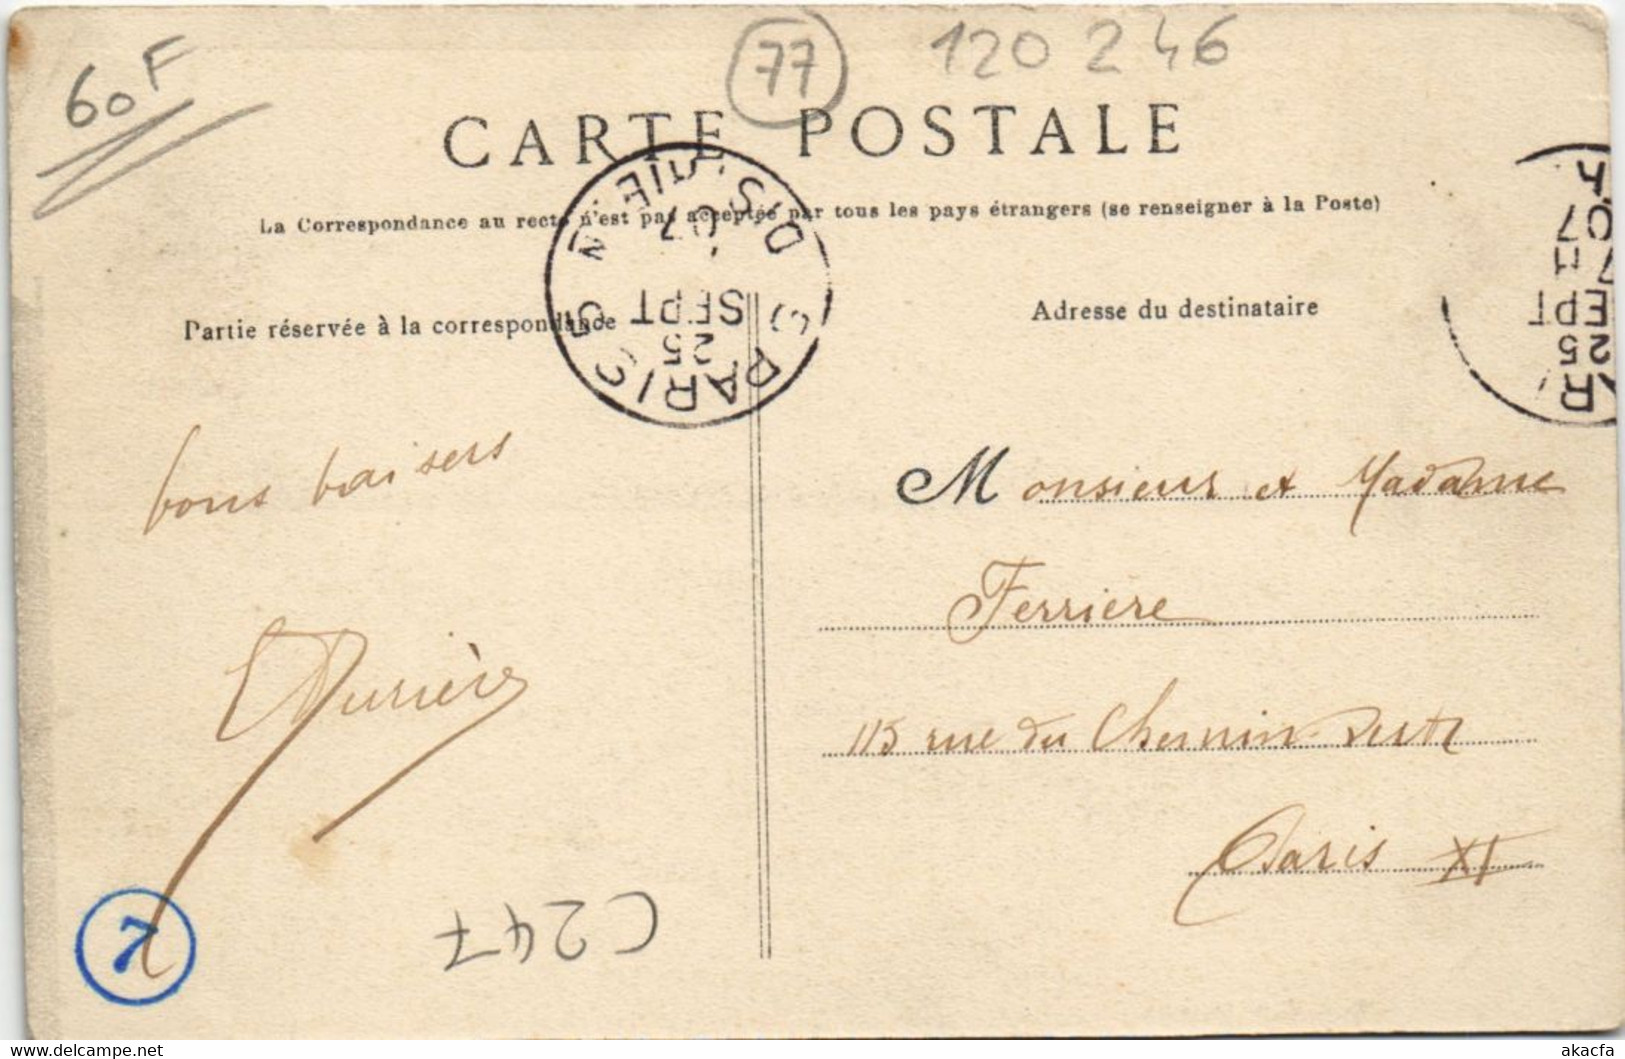 60F
77
120 246
CARTE POSTALE
La Correspondance au recto n'est pas acceptée par tous les pays étrangers (se renseigner à la Poste)
Partie réservée à la correspondance
Adresse du destinataire
PARIS
25
SEPT
07
25
EPT
07
bons baisers
Monsieur et Madame
Ferriere
115 rue du Chemin Vert
Paris XI
7
C247
akacfa